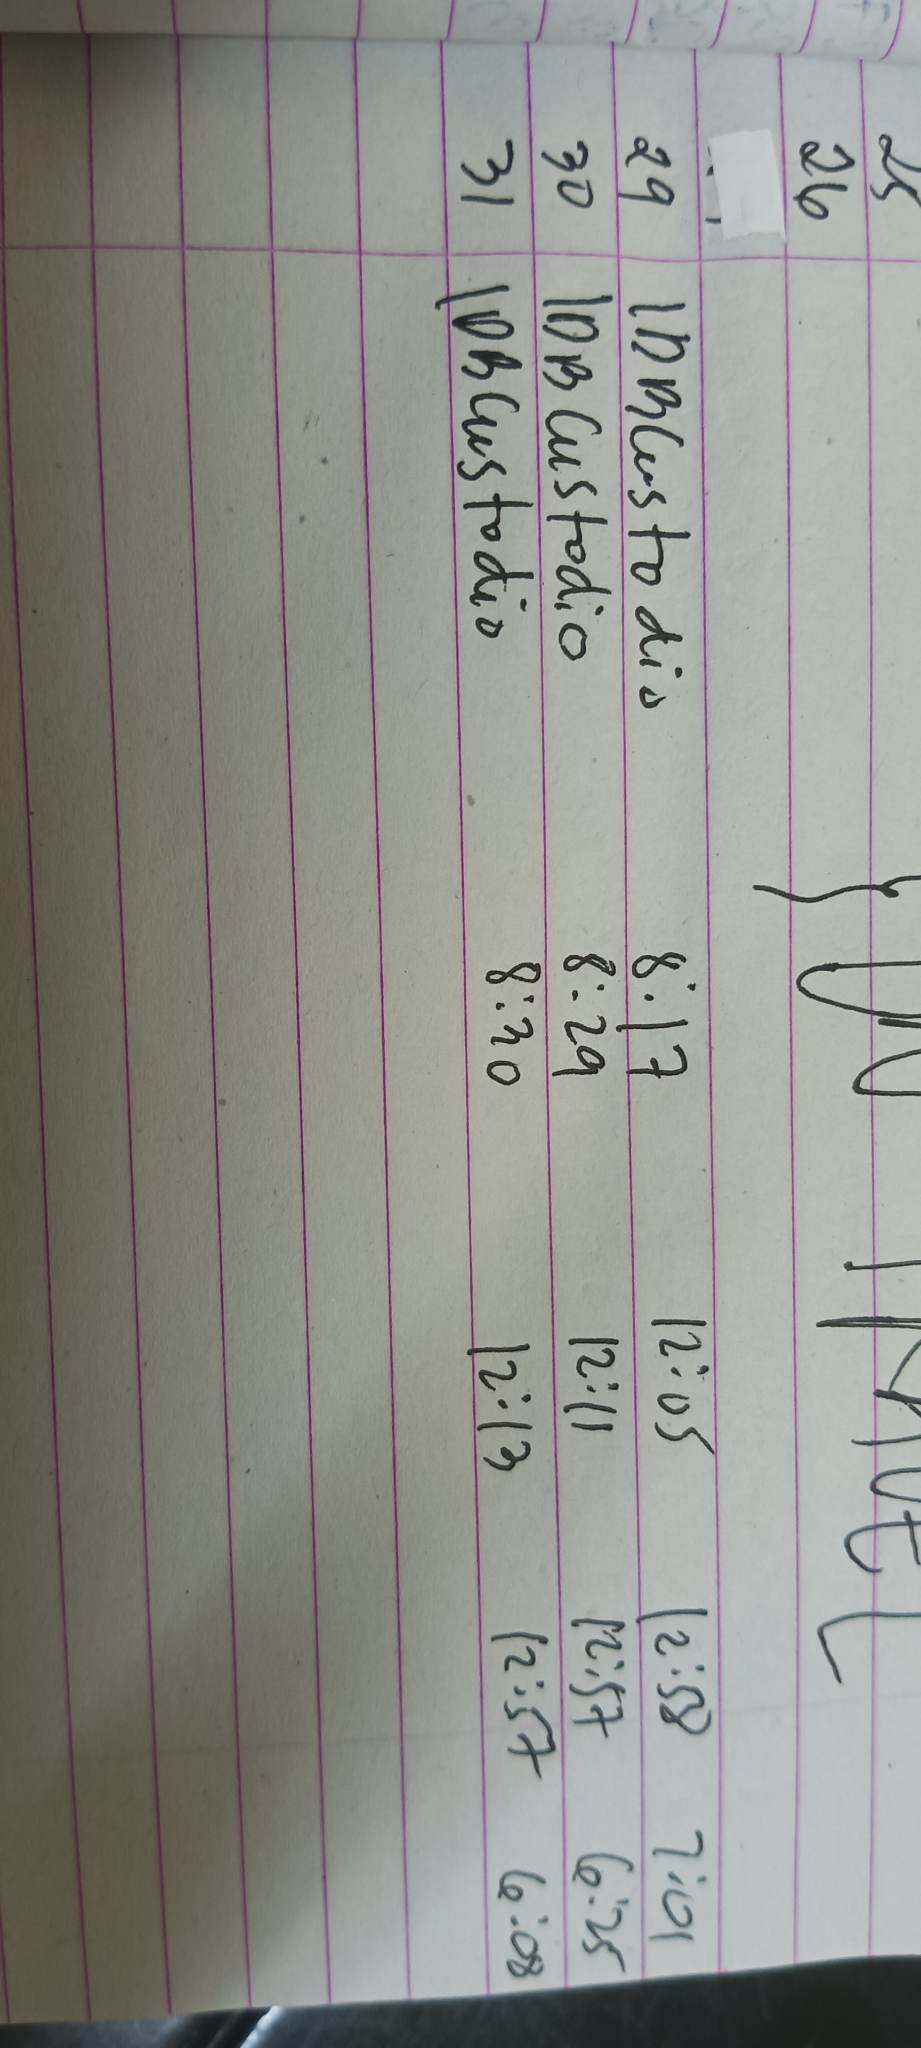 25
26
29 IDBCustodio 8:17 12:05 12:58 7:01
30 IDBCustodio 8:29 12:11 12:57 6:25
31 IDBCustodio 8:30 12:13 12:57 6:08